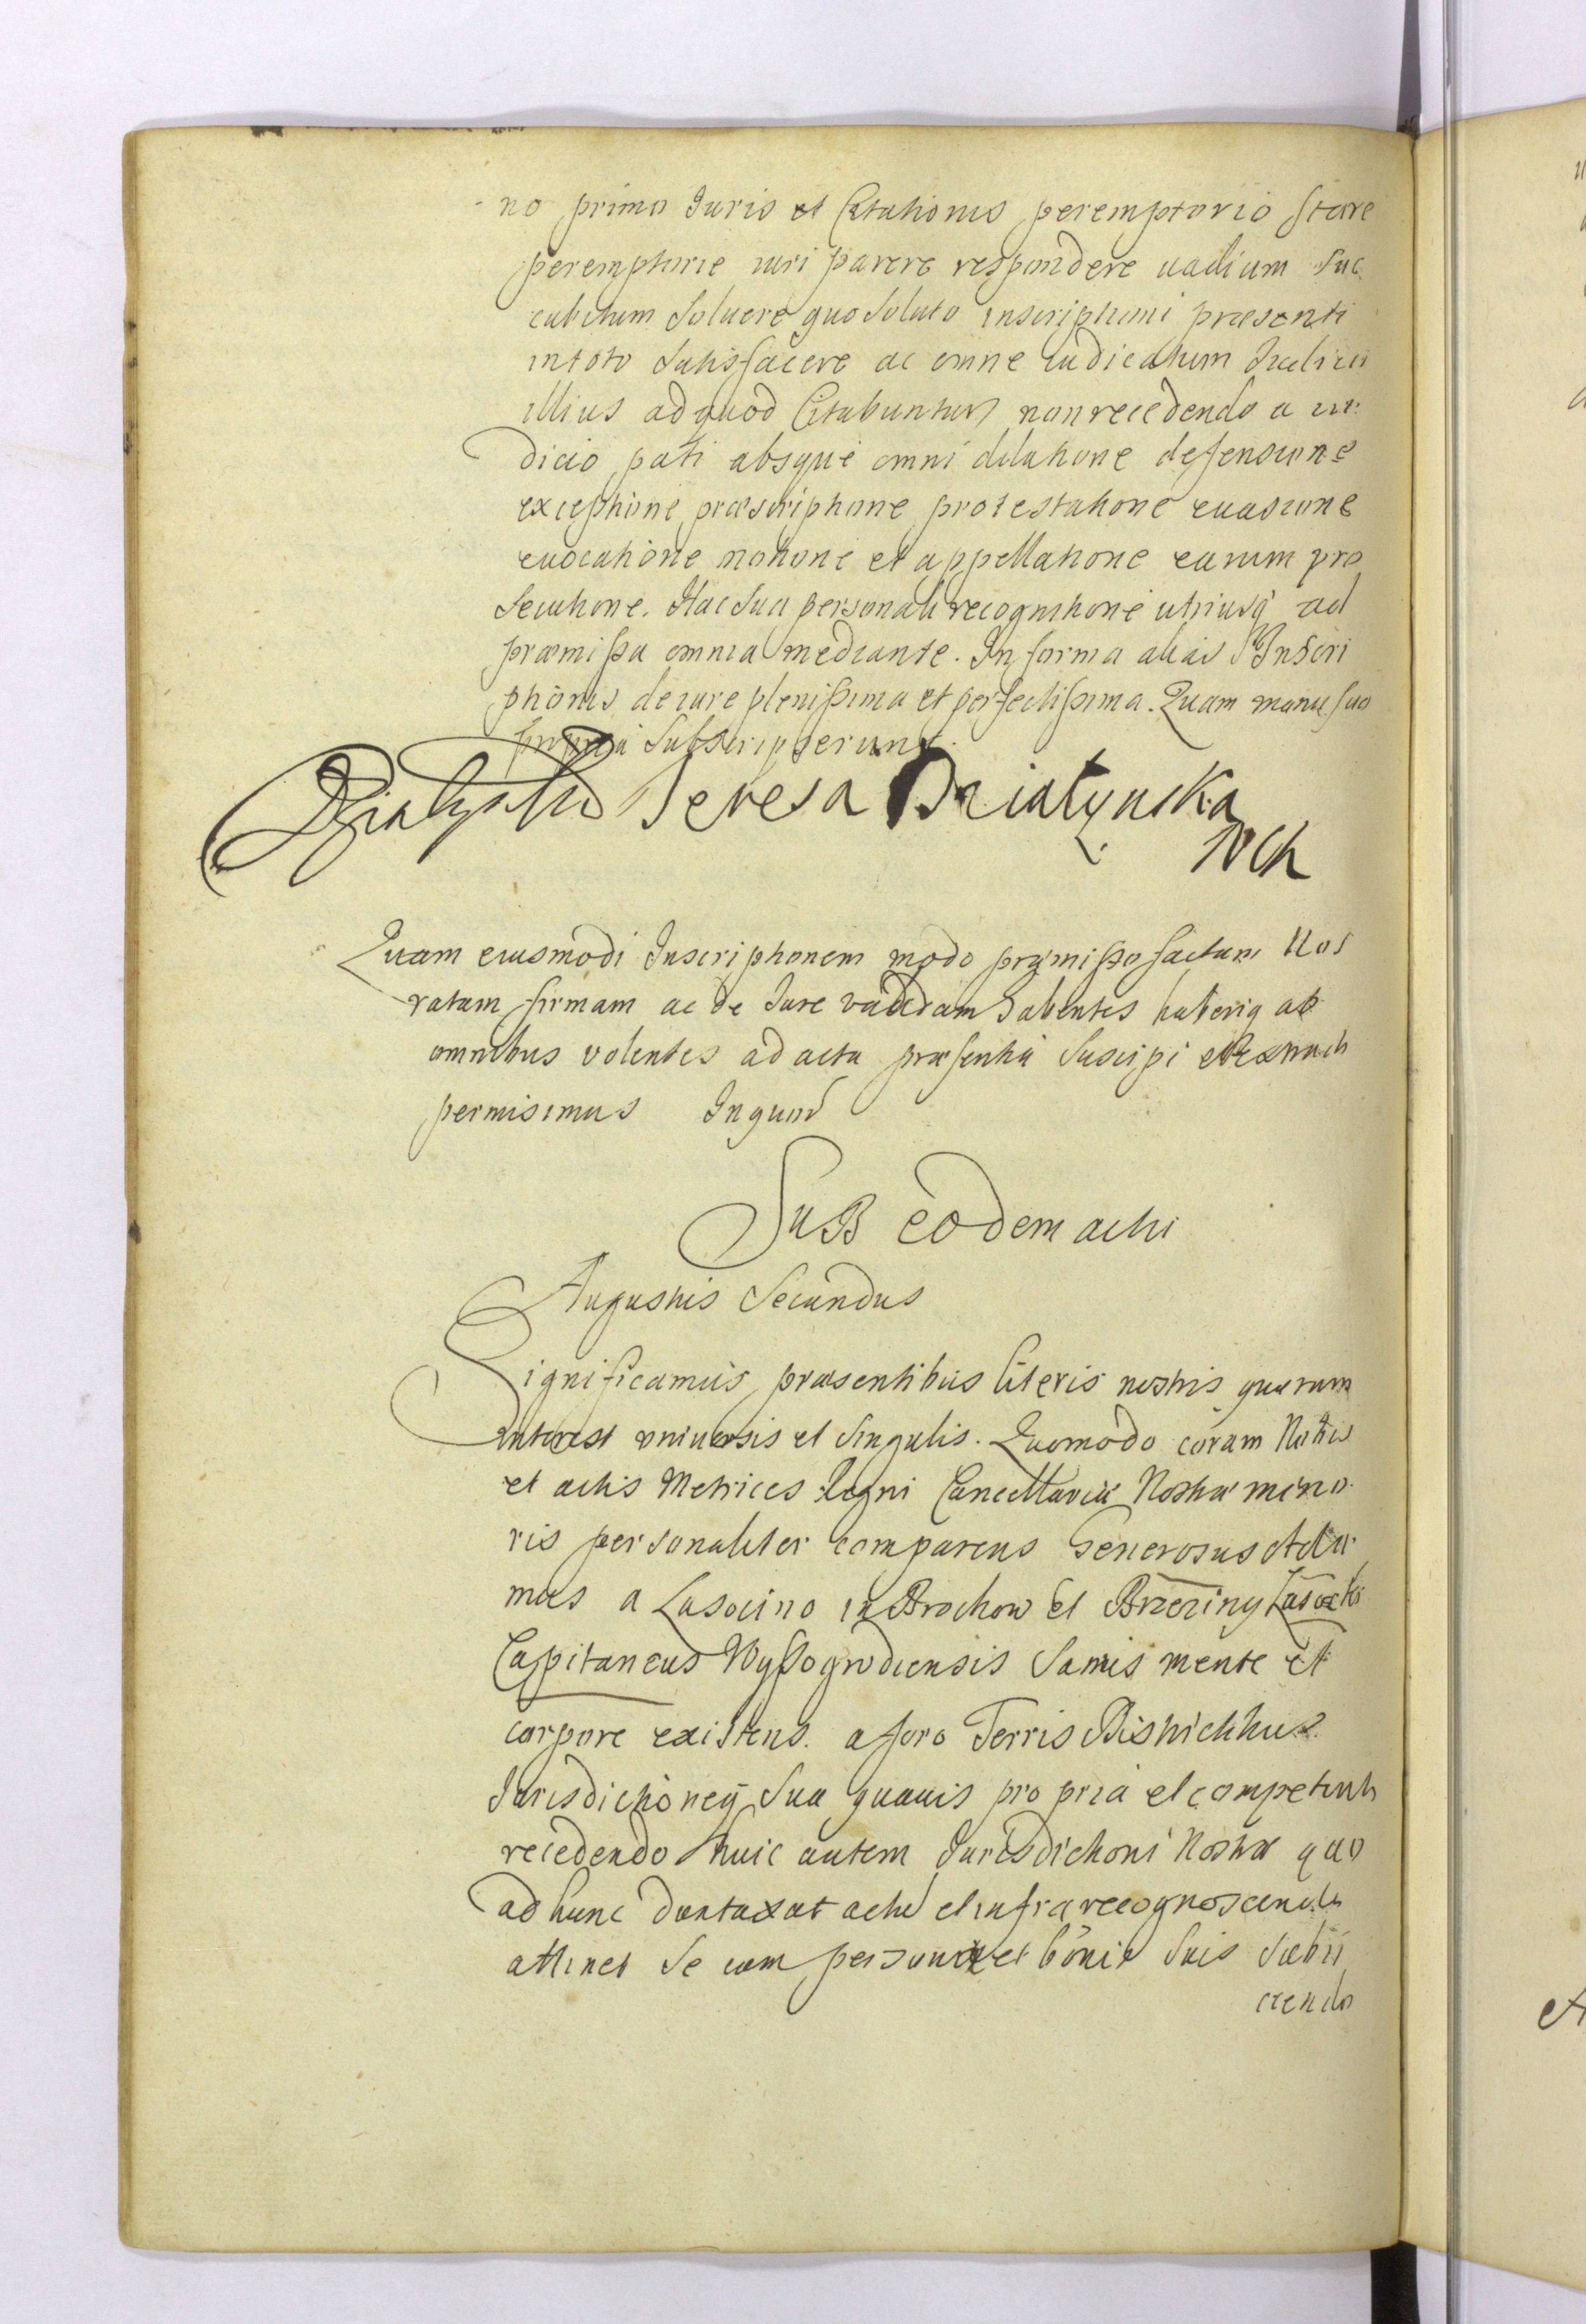 no primo Juris et Citationis peremptorio stare
peremptorie iuri parere respondere uadium suc
cubitum soluere quo soluto inscriptioni præsenti
intoto satisfacere ac omne iudicatum Iudicii
illius ad quod Citabuntur non recedendo a iu
dicio pati absque omni dilatione defensione
exceptione præscriptione protestatione euasione
euocatione motione et appellatione earum pro
secutione. Hac sua personali recognitione utriusq ad
præmissa omnia mediante. In forma alias Inscri
ptionis de iure plenissima et perfectissima. Quam manu sua
propria subscripserunt.
Działyński Teresa Działynska
Quam eiusmodi Inscriptionem modo præmisso factam Nos
ratam firmam ac de Jure validam habentes haberiq ab
omnibus volentes ad acta præsentia suscipi et extradi
permisimus Inquor
SuB eodem actu
Augustus Secundus
Significamus præsentibus literis nostris quorum
interest vniuersis et singulis. Quomodo coram Nobis
et actis Metrices Regni Cancellariæ Nostræ mino
ris personaliter comparens Generosus Ada
mus a Lasocino in Brochow et Brzeziny Lasocki
Capitaneus Wyssogrodiensis Sanus mente et
corpore existens. a foro Terris Districtibus
Jurisdictioneq sua quauis propria et competenti
recedendo huic autem Jurisdictioni Nostræ quo
ad hunc duntaxat actu et infra recognoscenda
attinet se cum persona et bonis suis subii
ciendo